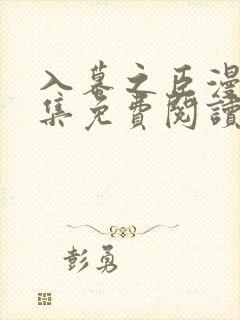 入幕之臣漫
集免費閱讀
彭勇